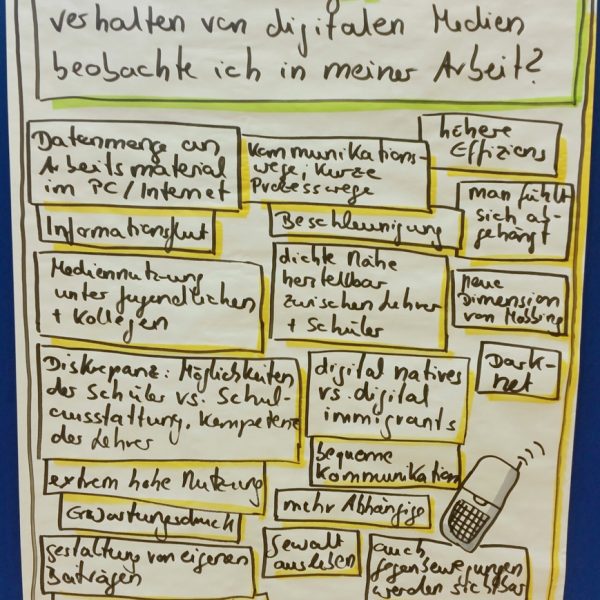 verhalten von digitalen Medien
beobachte ich in meiner Arbeit?
Datenmenge an
Arbeitsmaterial
im PC/Internet
Kommunikations-
wege, kurze
Prozesswege
höhere
Effiziens
Informationsflut
Beschleunigung
man fühlt
sich ab-
gehängt
Mediennutzung
unter Jugendlichen
+ Kollegen
dichte Nähe
herstellbar
zwischen Lehrer
+ Schüler
neue
Dimension
von Mobbing
Diskrepanz: Möglichkeiten
der Schüler vs. Schul-
ausstattung, Kompetenz
der Lehrer
digital natives
vs. digital
immigrants
Dark-
net
extrem hohe Nutzung
bequeme
Kommunikation
Erwartungsdruck
mehr Abhängige
Gestaltung von eigenen
Beiträgen
Gewalt
ausleben
auch
Gegenbewegungen
werden sichtbar